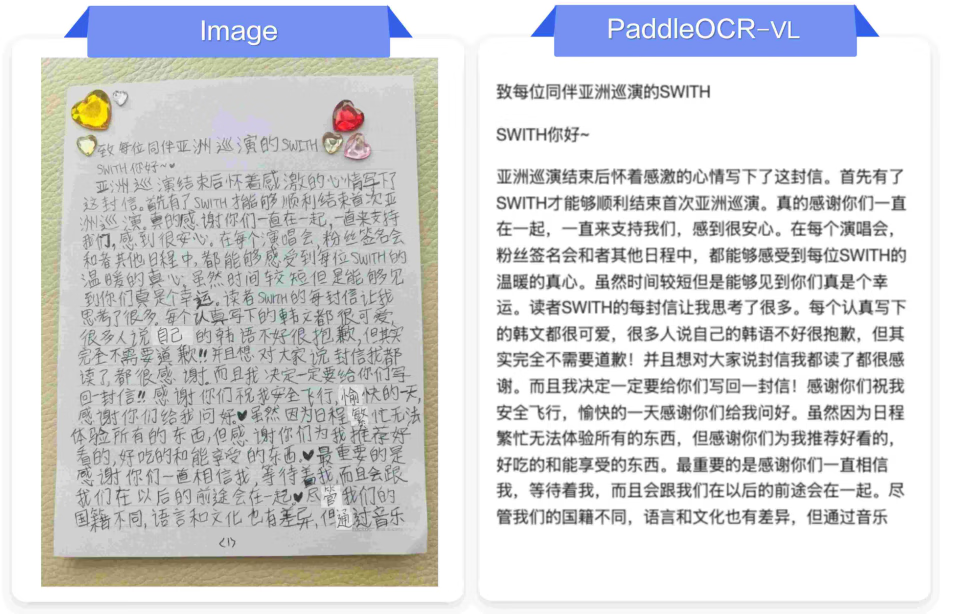 Image
致每位同伴亚洲巡演的SWITH
SWITH你好~♥
亚洲巡演结束后怀着感激的心情写下了
这封信。首先有了SWITH才能够顺利结束首次亚
洲巡演。真的感谢你们一直在一起,一直来支持
我们,感到很安心。在每个演唱会,粉丝签名会
和者其他日程中,都能够感受到每位SWITH的
温暖的真心。虽然时间较短但是能够见
到你们真是个幸运。读者SWITH的每封信让我
思考了很多。每个认真写下的韩文都很可爱,
很多人说自己的韩语不好很抱歉,但其实
完全不需要道歉!!并且想对大家说封信我都
读了都很感谢。而且我决定一定要给你们写
回一封信!!感谢你们祝我安全飞行,愉快的一天,
感谢你们给我问好♥虽然因为日程繁忙无法
体验所有的东西,但感谢你们为我推荐好
看的,好吃的和能享受的东西.♥最重要的是
感谢你们一直相信我,等待着我,而且会跟
我们在以后的前途会在一起♥尽管我们的
国籍不同,语言和文化也有差异,但通过音乐
<1>
PaddleOCR-VL
致每位同伴亚洲巡演的SWITH
SWITH你好~
亚洲巡演结束后怀着感激的心情写下了这封信。首先有了
SWITH才能够顺利结束首次亚洲巡演。真的感谢你们一直
在一起，一直来支持我们，感到很安心。在每个演唱会，
粉丝签名会和者其他日程中，都能够感受到每位SWITH的
温暖的真心。虽然时间较短但是能够见到你们真是个幸
运。读者SWITH的每封信让我思考了很多。每个认真写下
的韩文都很可爱，很多人说自己的韩语不好很抱歉，但其
实完全不需要道歉！并且想对大家说封信我都读了都很感
谢。而且我决定一定要给你们写回一封信！感谢你们祝我
安全飞行，愉快的一天感谢你们给我问好。虽然因为日程
繁忙无法体验所有的东西，但感谢你们为我推荐好看的，
好吃的和能享受的东西。最重要的是感谢你们一直相信
我，等待着我，而且会跟我们在以后的前途会在一起。尽
管我们的国籍不同，语言和文化也有差异，但通过音乐